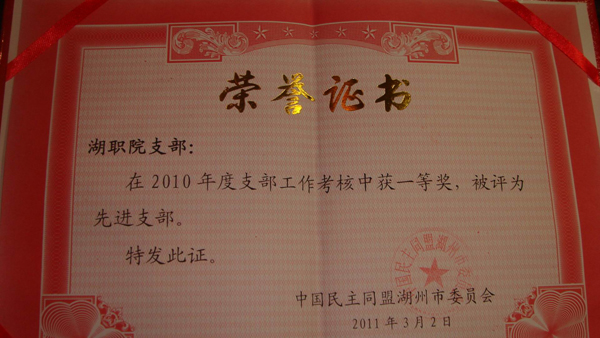 荣誉证书
湖职院支部：
在 2010 年度支部工作考核中获一等奖，被评为
先进支部。
特发此证。
中国民主同盟湖州市委员会
2011 年 3 月 2 日